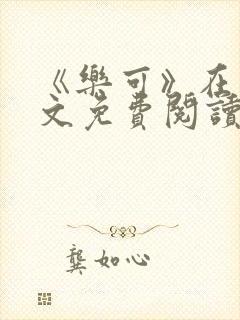 《樂可》在
文免費閱讀
龔如心